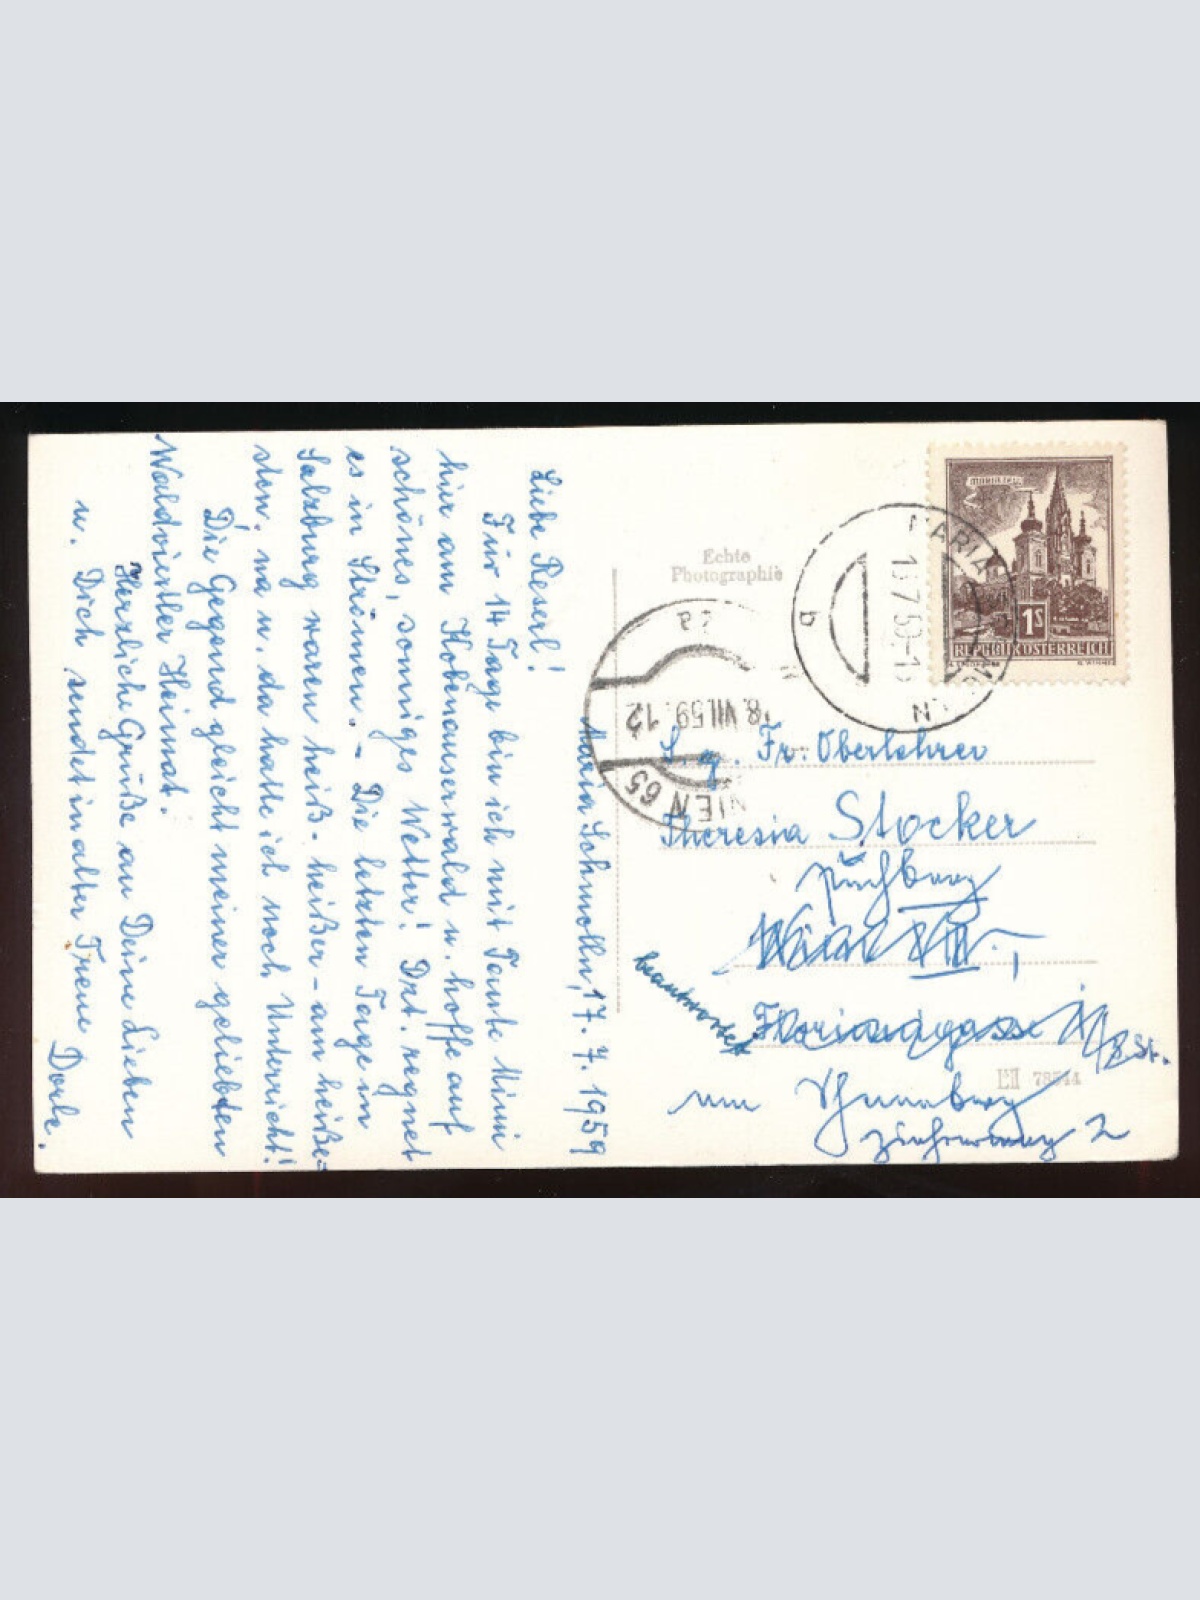 Maria Schmolln, 17. 7. 1959
Liebe Reserl!
Für 14 Tage bin ich mit Tante Mimi
hier am Kobenauserwald u. hoffe auf
schönes, sonniges Wetter! Dzt. regnet
es in Strömen. - Die letzten Tage in
Salzburg waren heiß - heißer - am heiße=
sten. na u. da hatte ich noch Unterricht!
Die Gegend gleicht meiner geliebten
Waldviertler Heimat.
Herzliche Grüße an Deine Lieben
u. Dich sendet in alter Treue Dorle.
Echte
Photographie
MARIA
17.7.59-1
b
N
MARIAZELL
1S
REPUBLIK ÖSTERREICH
WIEN 65
18.VII.59.12
S. g. Fr. Oberlehrer
Theresia Stocker
Wien VIII.,
Floriangasse
/8 St.
beantwortet
78544
2